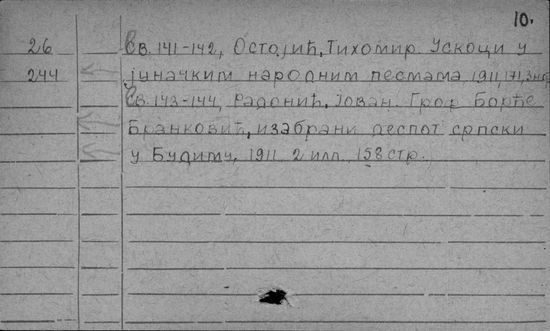 10.
26 Св. 141-142, Остојић, Тихомир. Ускоци у
244 јуначким народним песмама, 1911, 171,
Св. 143-144, Радонић, Јован. Гроф Ђорђе
Бранковић, изабрани деспот српски
у Будиму, 1911 2 илл. 158 стр.